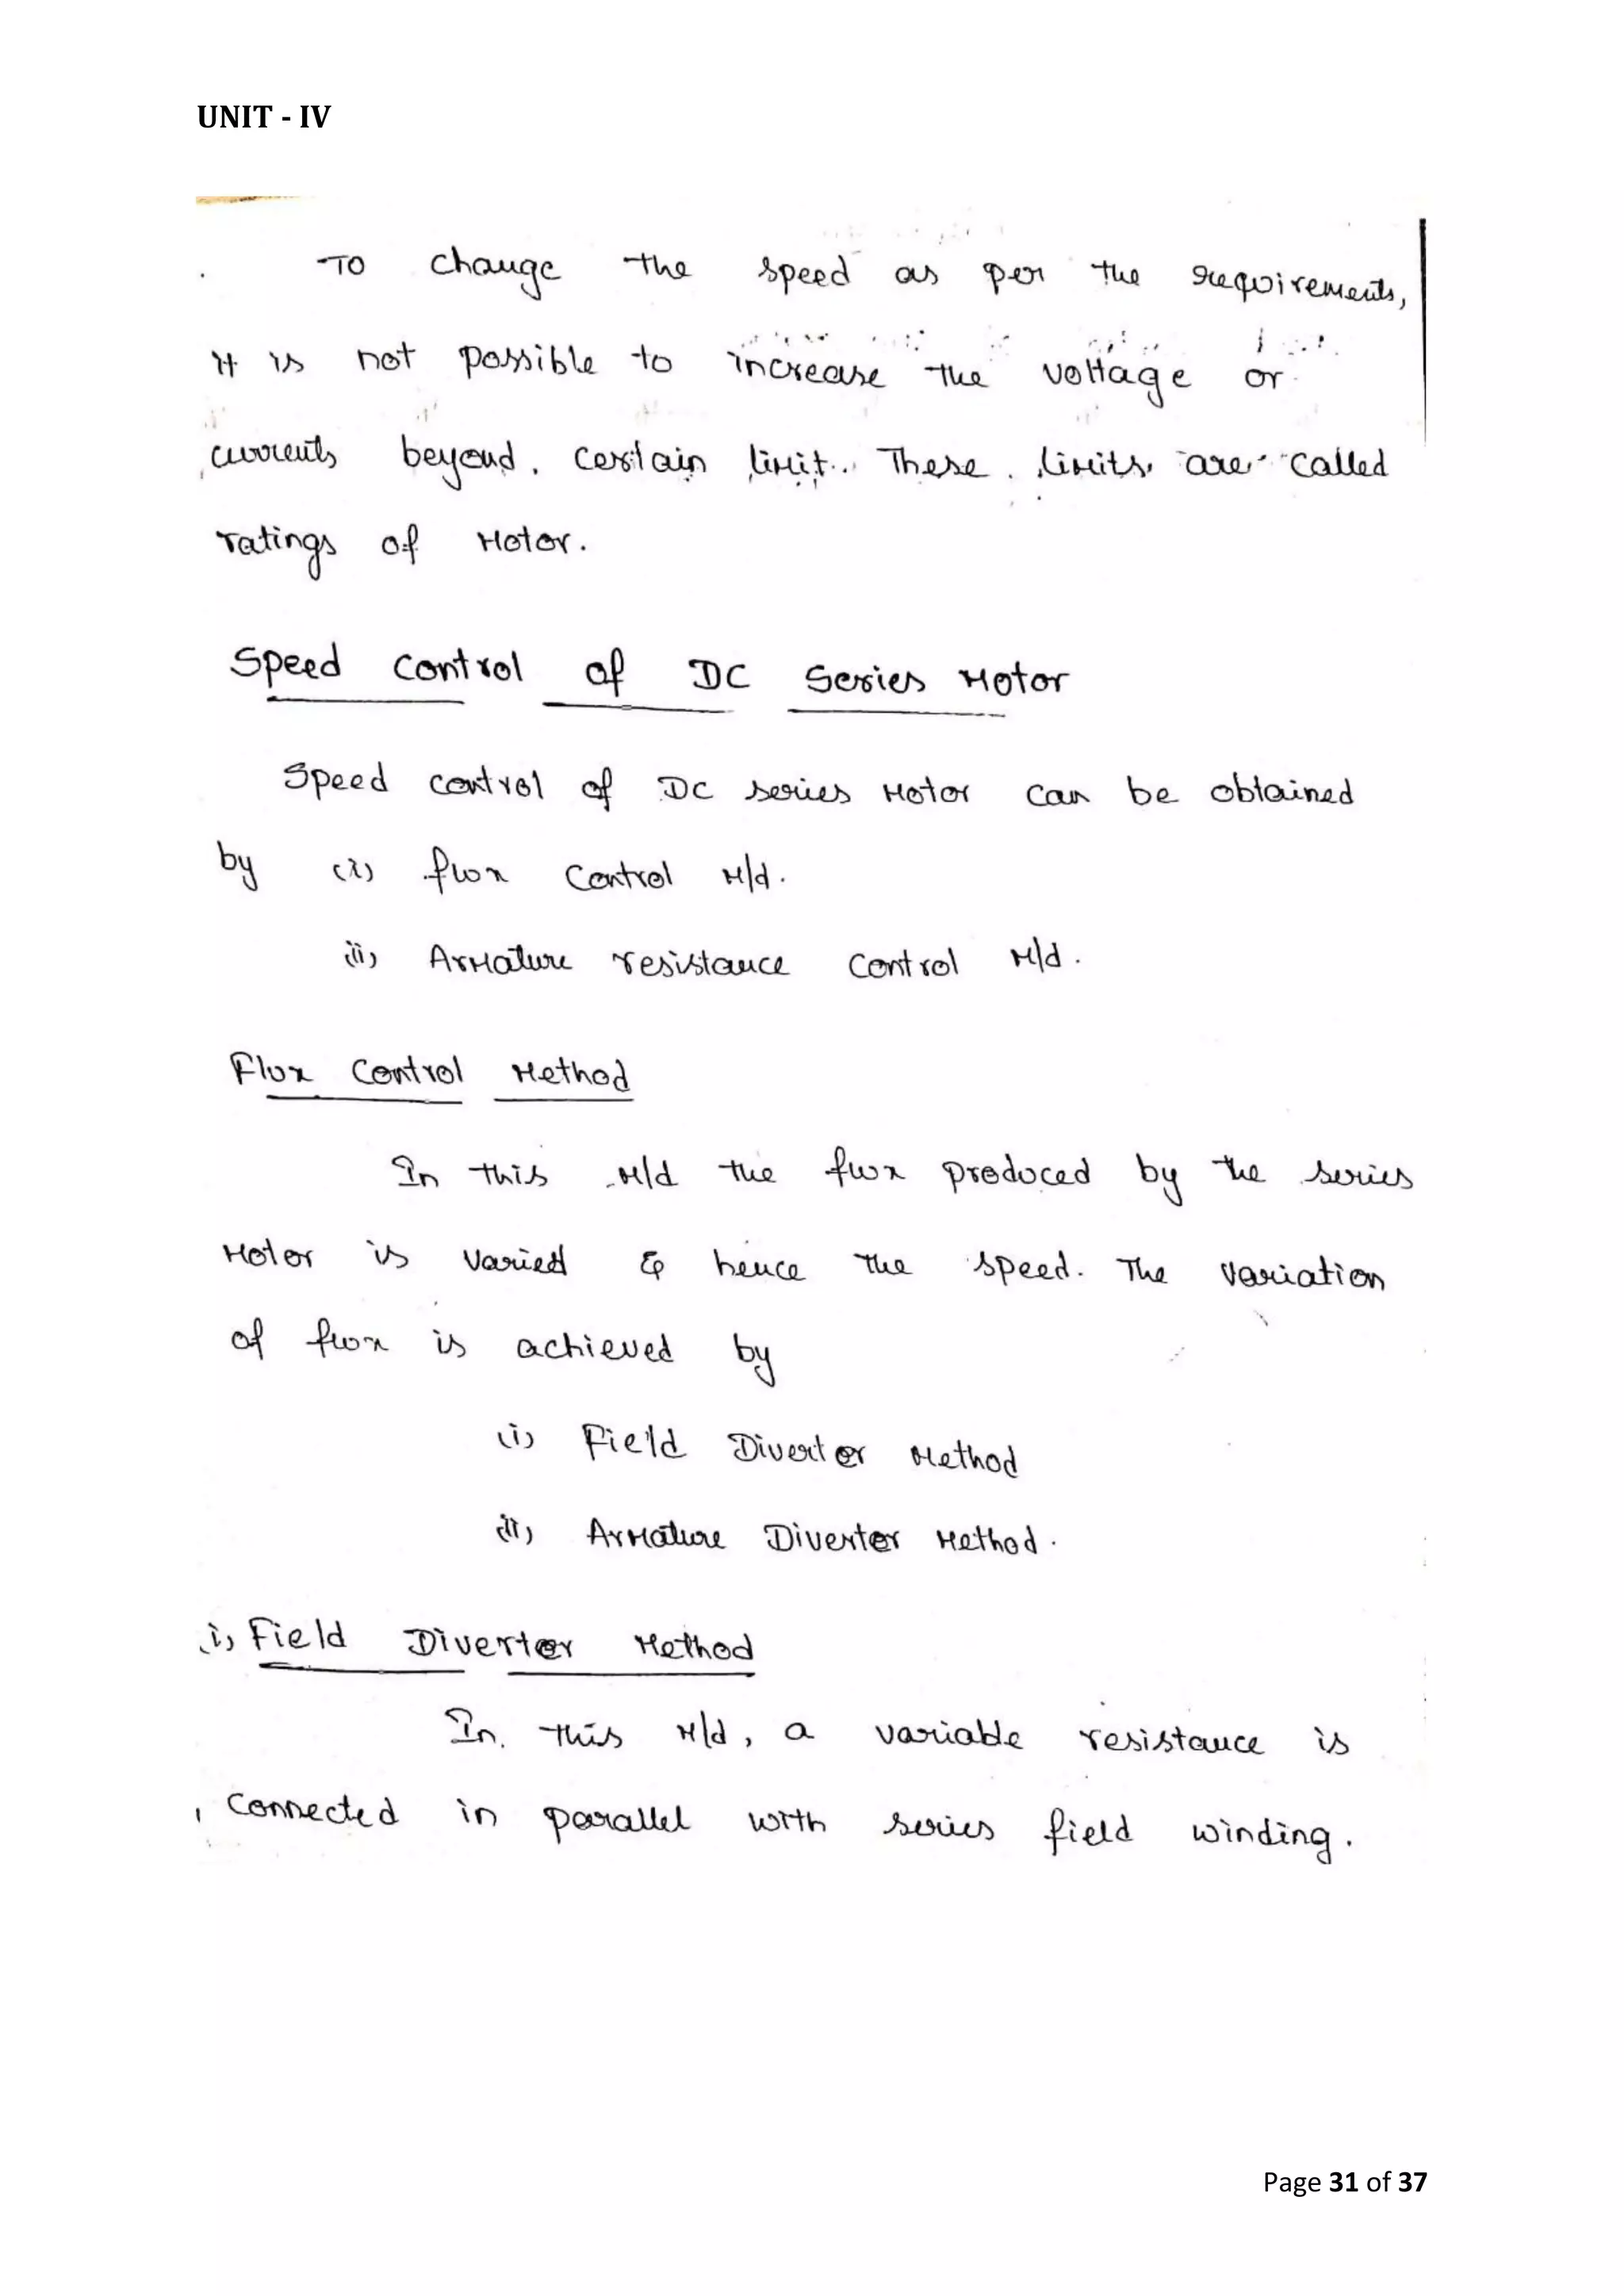 UNIT - IV
To change the speed as per the requirements,
it is not possible to increase the voltage or
currents beyond certain limit. These limits are called
ratings of Motor.
Speed control of DC Series Motor
Speed control of DC series Motor can be obtained
by (i) flux control M/d.
(ii) Armature resistance control M/d.
Flux Control Method
In this M/d the flux produced by the series
Motor is varied & hence the speed. The variation
of flux is achieved by
(i) Field Diverter Method
(ii) Armature Diverter Method.
i) Field Diverter Method
In this M/d, a variable resistance is
connected in parallel with series field winding.
Page 31 of 37